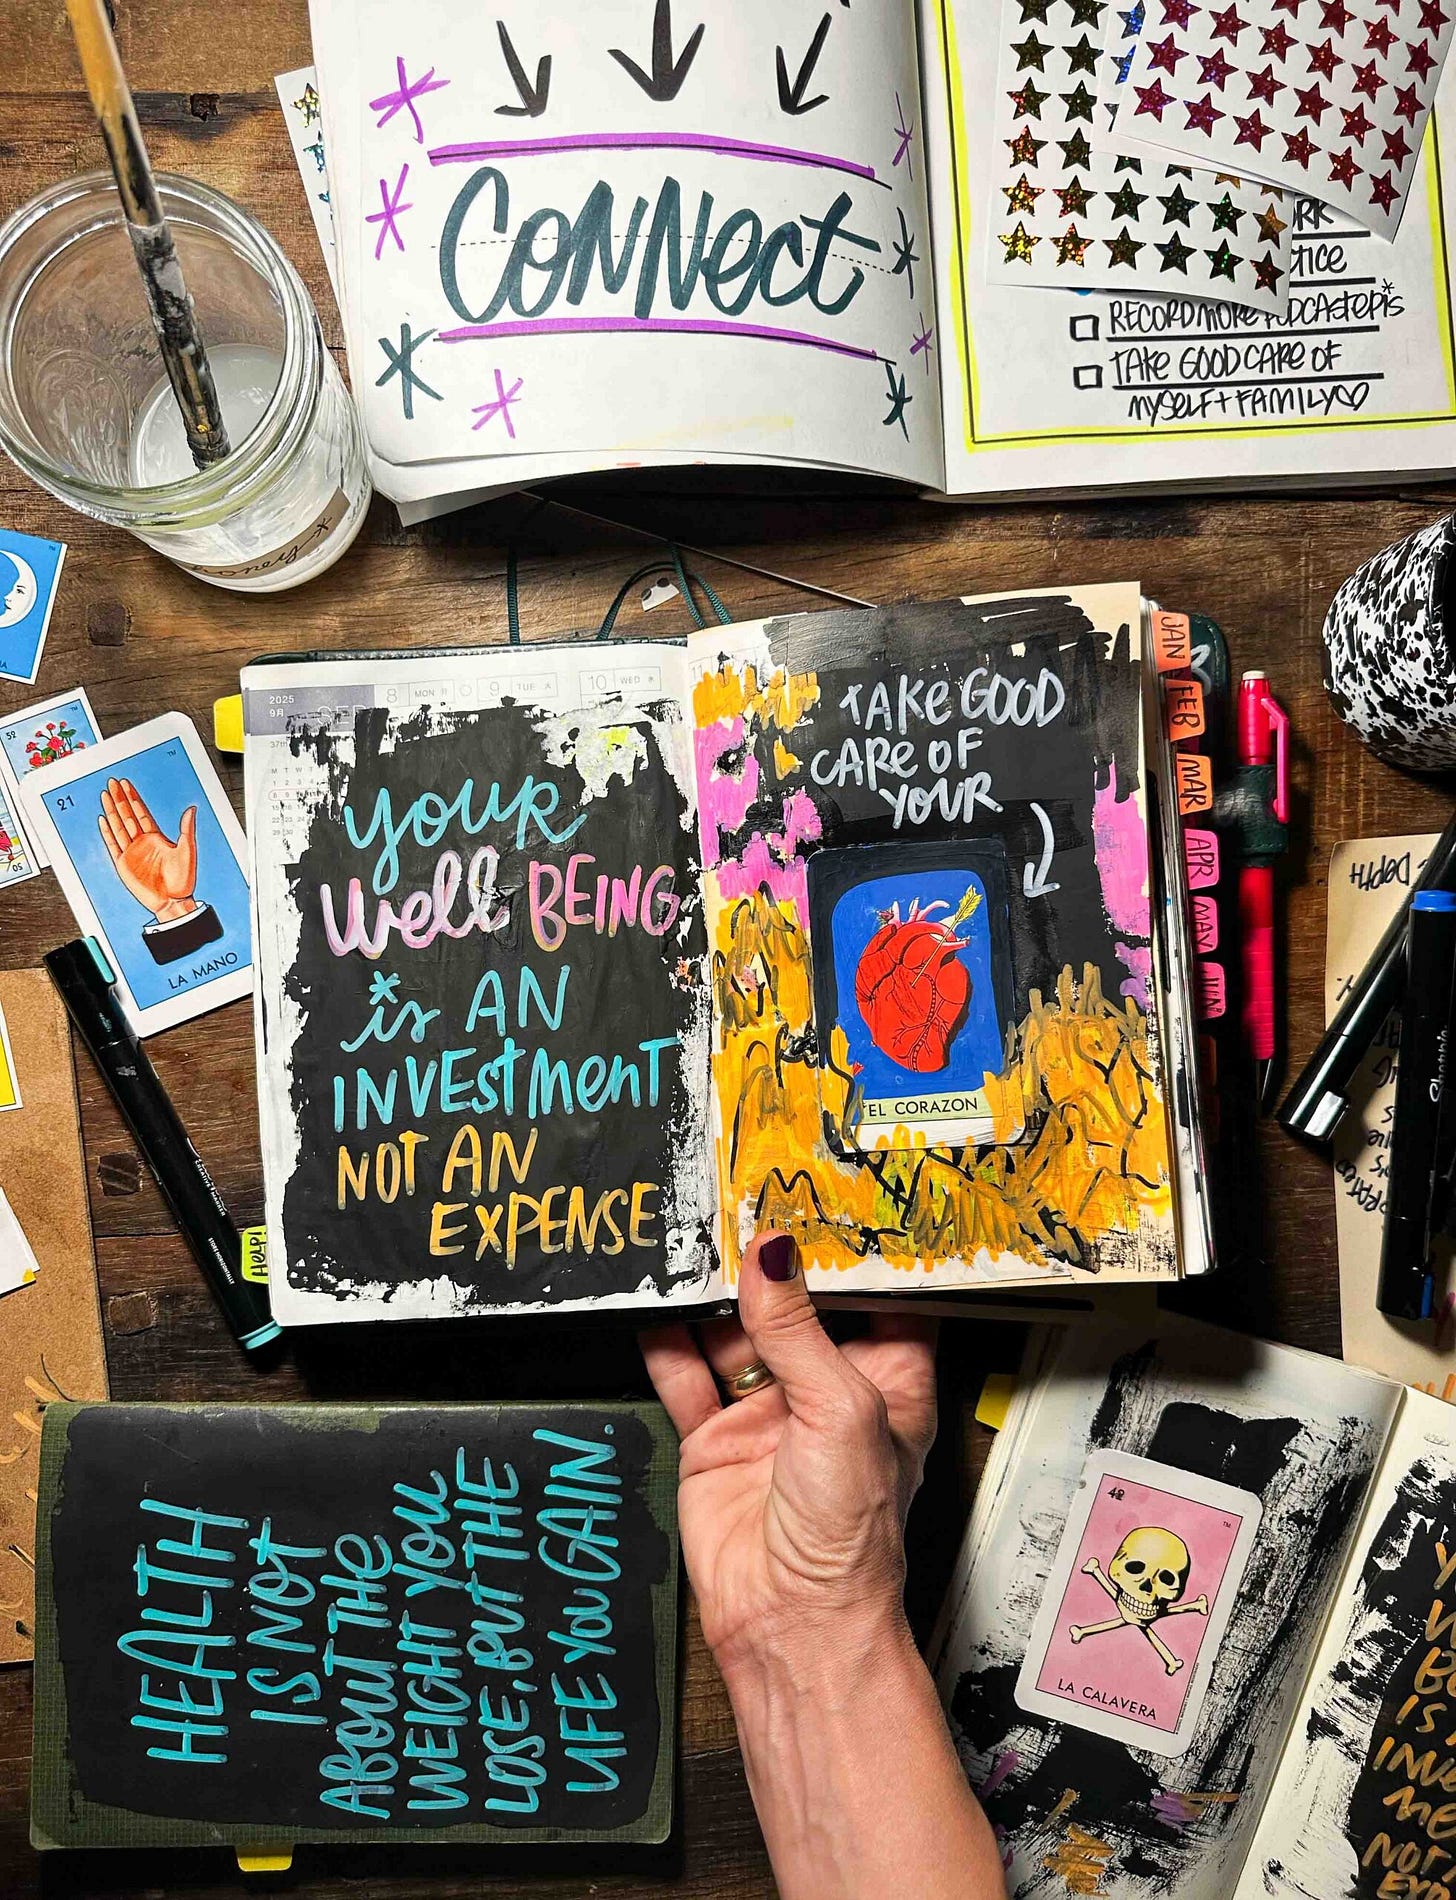 CONNect
RK
ctice
RECORD MORE PODCAST EPIS*
TAKE GOOD CARE OF
MYSELF + FAMILY
2025
9月
SEP
8 MON 月
9 TUE 火
10 WED 水
37th
M T W T
YOUR
Well BEING
*is AN
INVEStMENT
NOT AN
EXPENSE
HELP!
tAKE GOOD
CARE OF
YOUR
EL CORAZON
JAN
FEB
MAR
APR
MAY
JUN
21
LA MANO
50
DEPTH
Sharpie
HEALTH
IS NOt
ABOUT THE
WEIGHT YOU
LOSE, BUT THE
LIFE YOU GAIN.
42
LA CALAVERA
IS
NOT